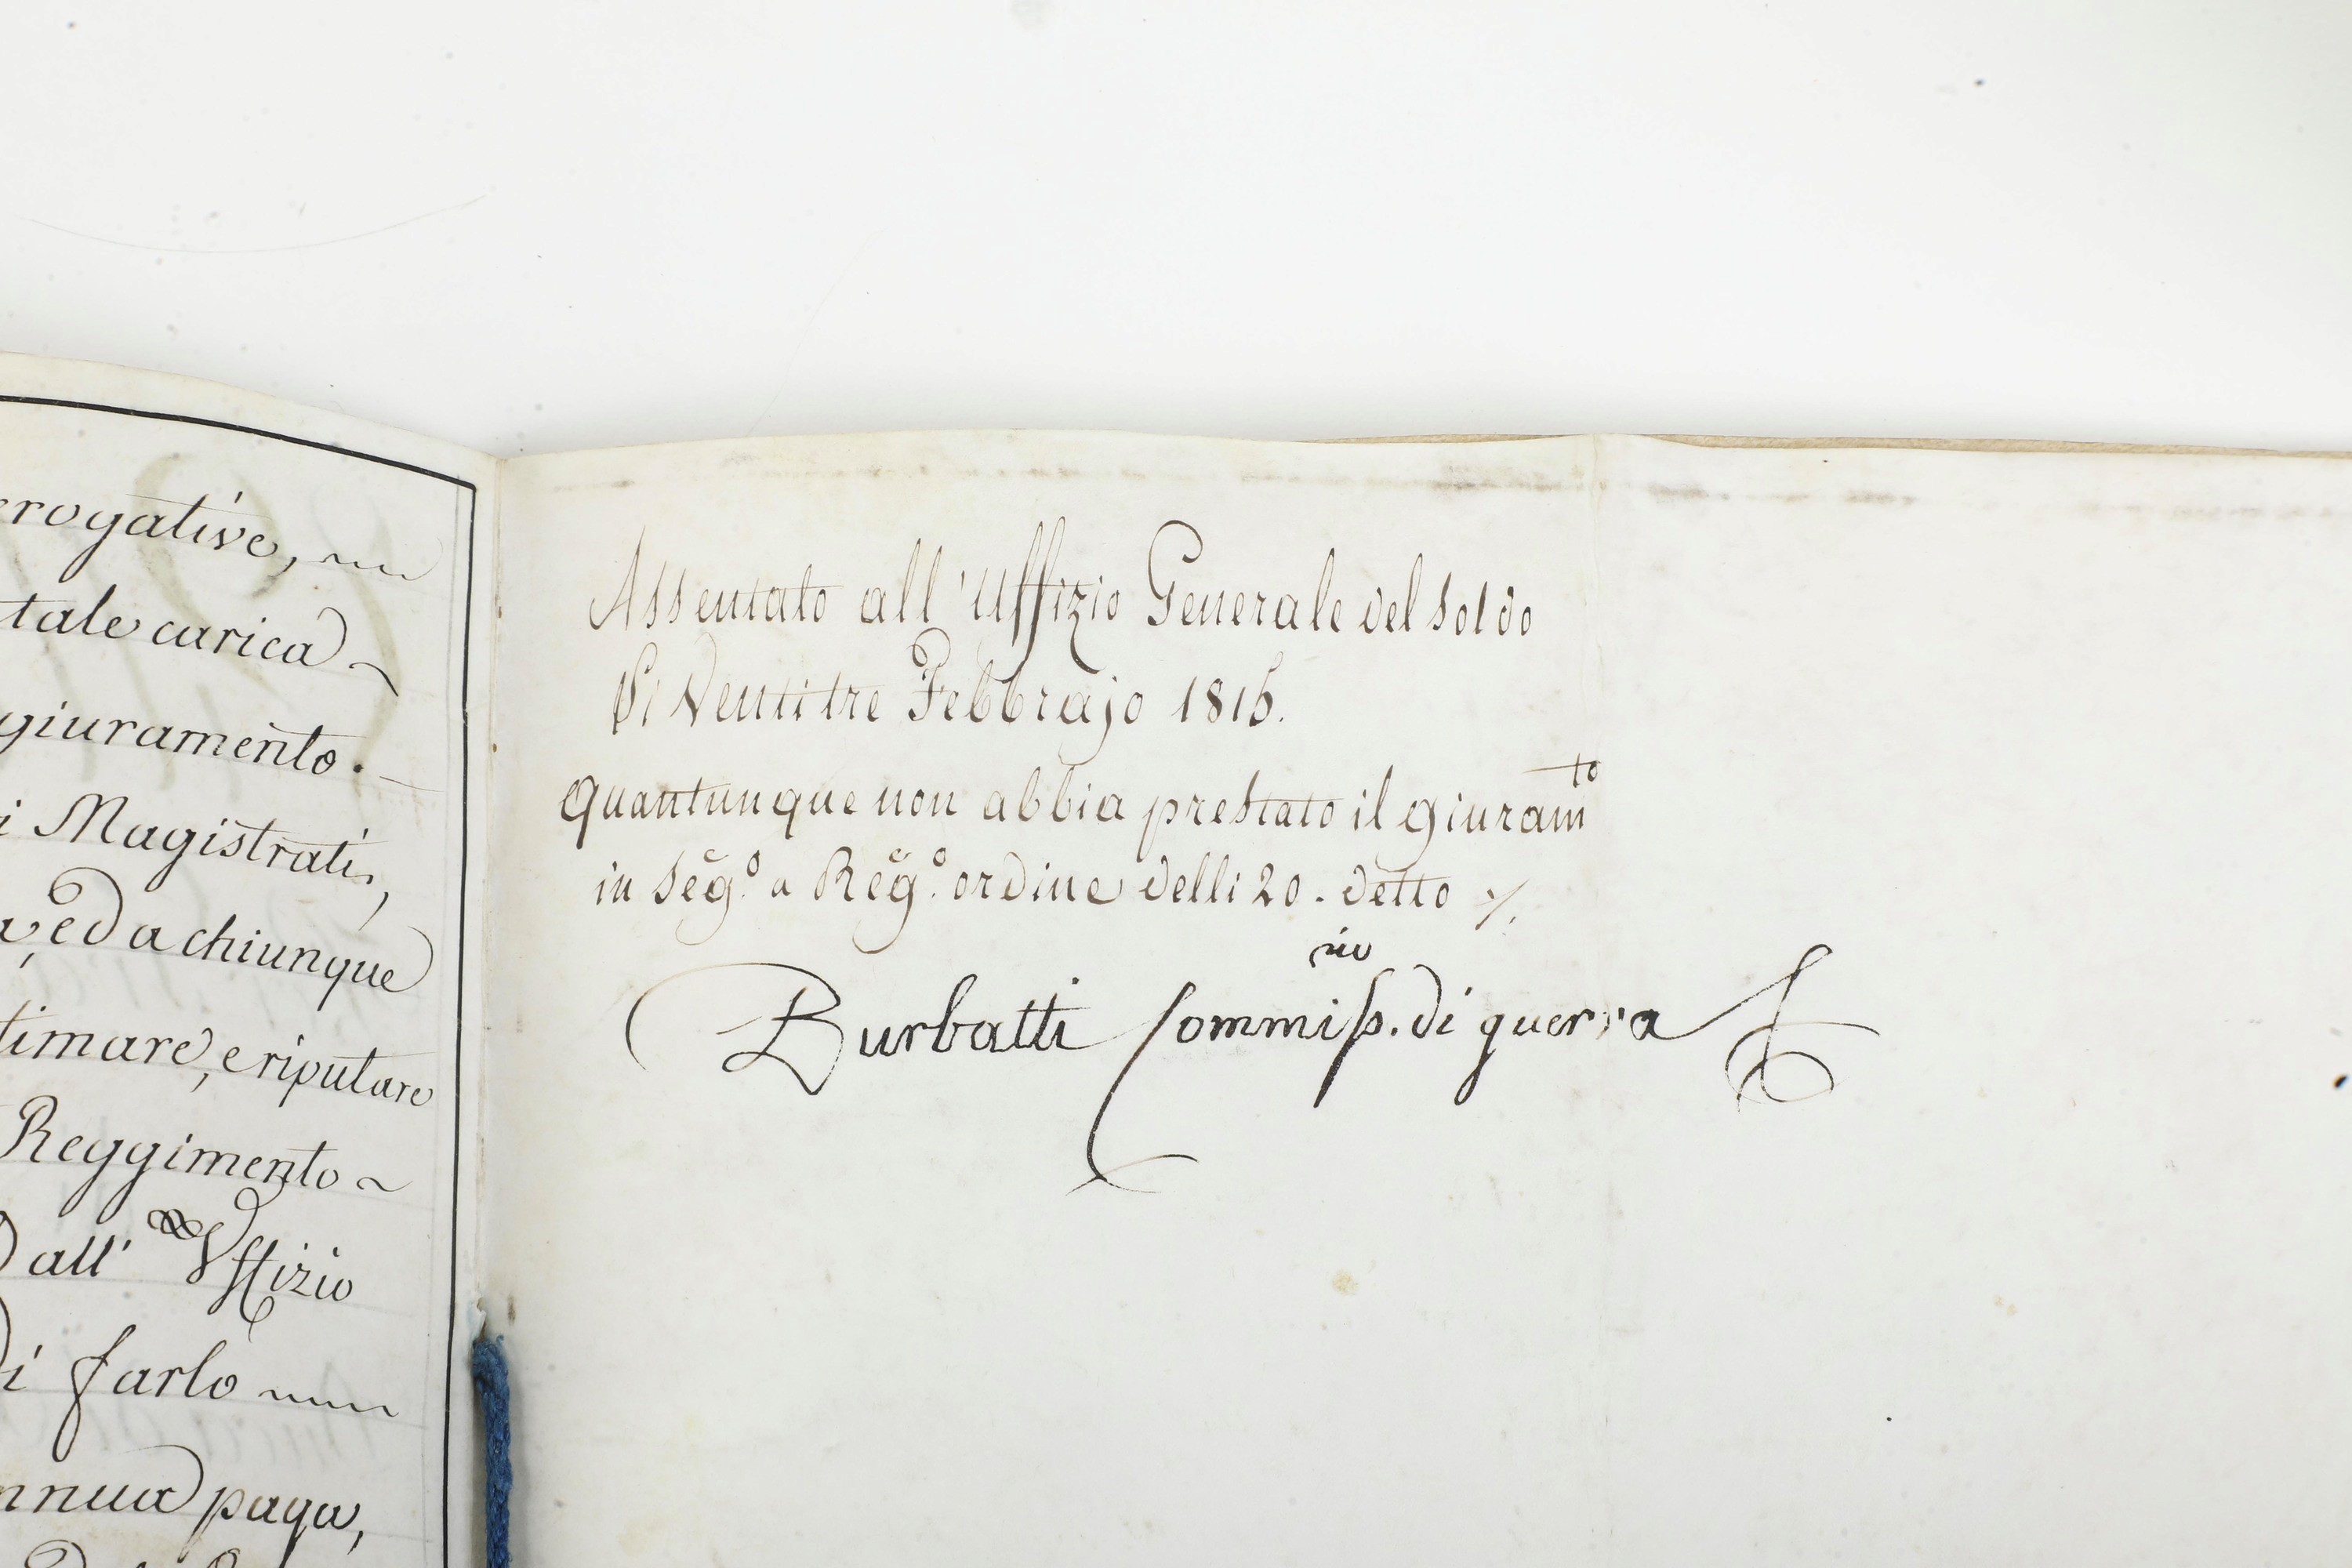 rogative,
tale carica
giuramento.
i Magistrati,
ed a chiunque
timare, e riputare
Reggimento
all' Uffizio
i farlo
nnua paga,
Assentato all'Uffizio Generale del Soldo
Li Ventitre Febbrajo 1815.
Quantunque non abbia prestato il giuram.to
in Seg.o a Reg.o ordine delli 20. detto
Burbatti Commiss.rio di guerra